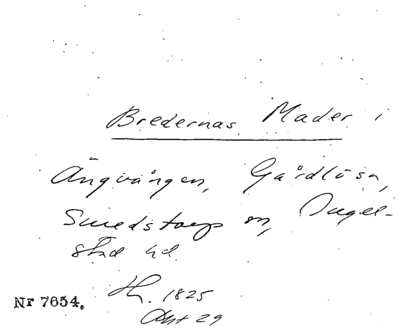 Bredernas Mader i
Ängvången, Gårdlösa,
Smedstorp sn, Ingel-
stad hd.
Nr 7654. H. 1825
Akt 29